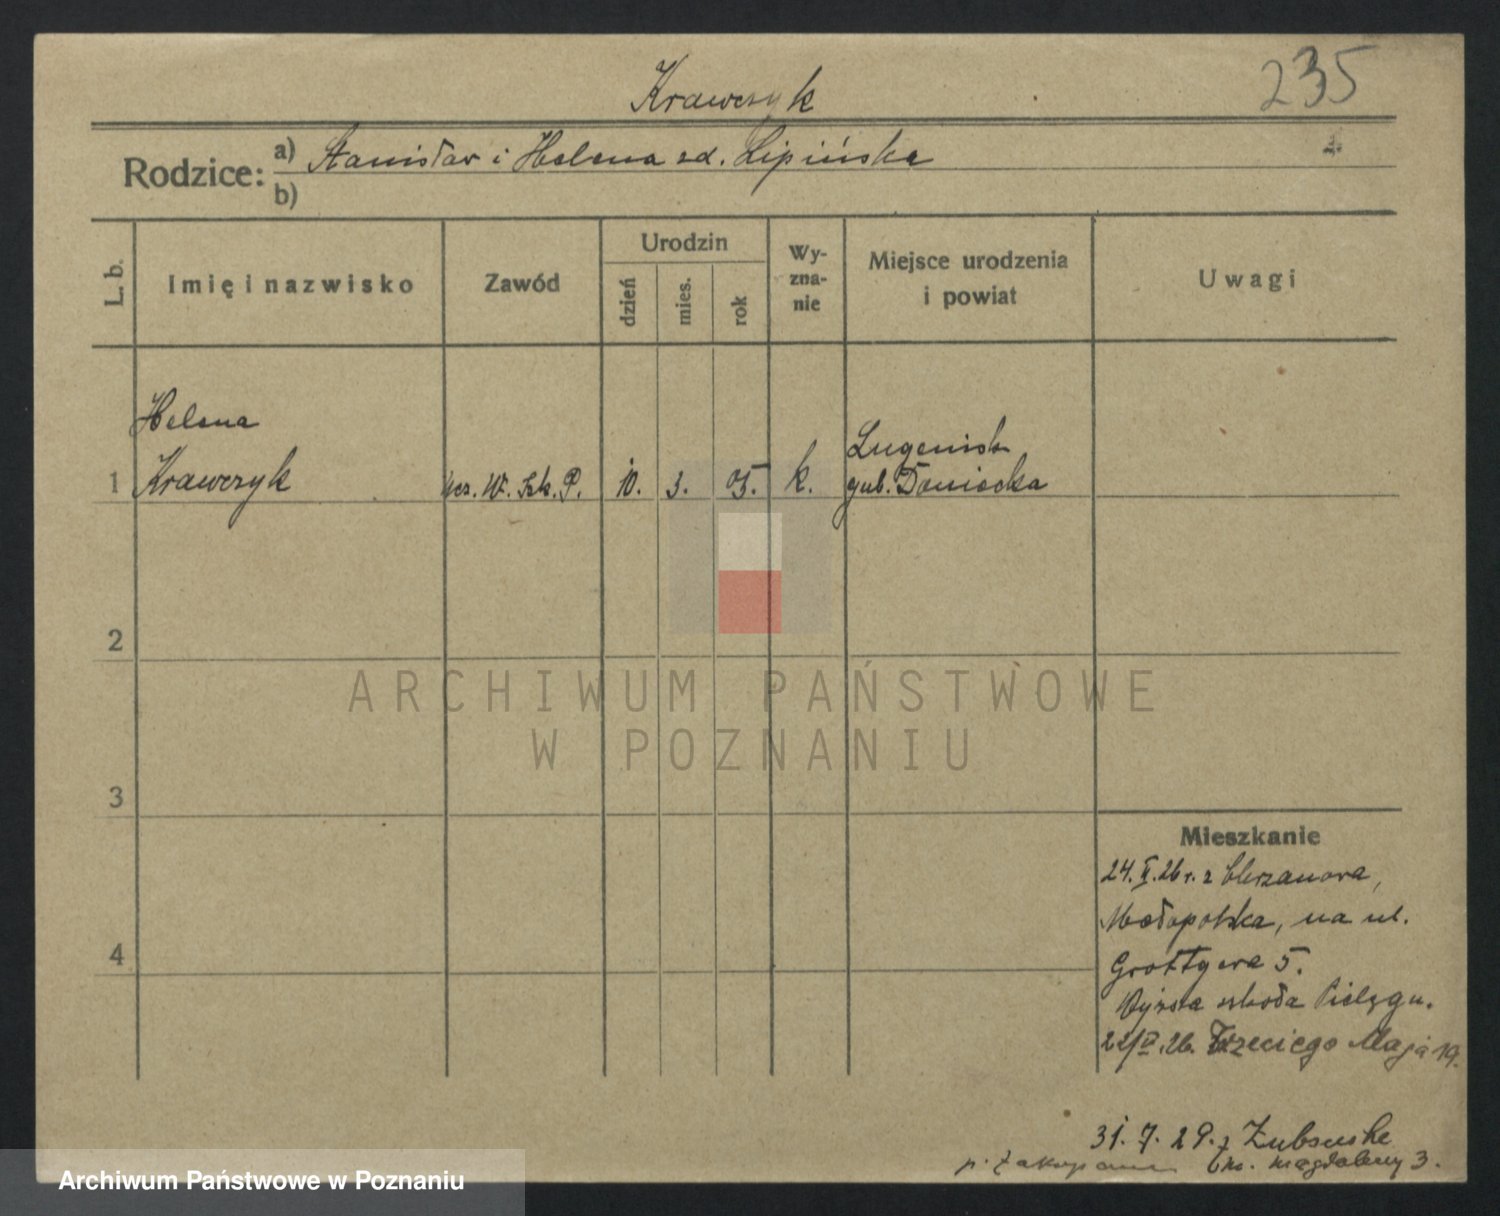 235
Krawczyk
Rodzice: a) Stanisław i Helena zd. Lipińska
b)
L. b.
Imię i nazwisko
Zawód
Urodzin
dzień
mies.
rok
Wy-
zna-
nie
Miejsce urodzenia
i powiat
Uwagi
Helena
1 Krawczyk ucz. W. Szk. P. 10. 3. 05. k.
Lugenisk
gub. Doniecka
2
3
4
ARCHIWUM PAŃSTWOWE
W POZNANIU
Mieszkanie
24. 26 r. z Chrzanowa,
Małopolska, na ul.
Grottgera 5.
Wyższa szkoła Pielęgn.
22/ 26. Trzeciego Maja 19.
31. 7. 29. z Zubsuche
p. Zakopane św. Magdaleny 3.
Archiwum Państwowe w Poznaniu